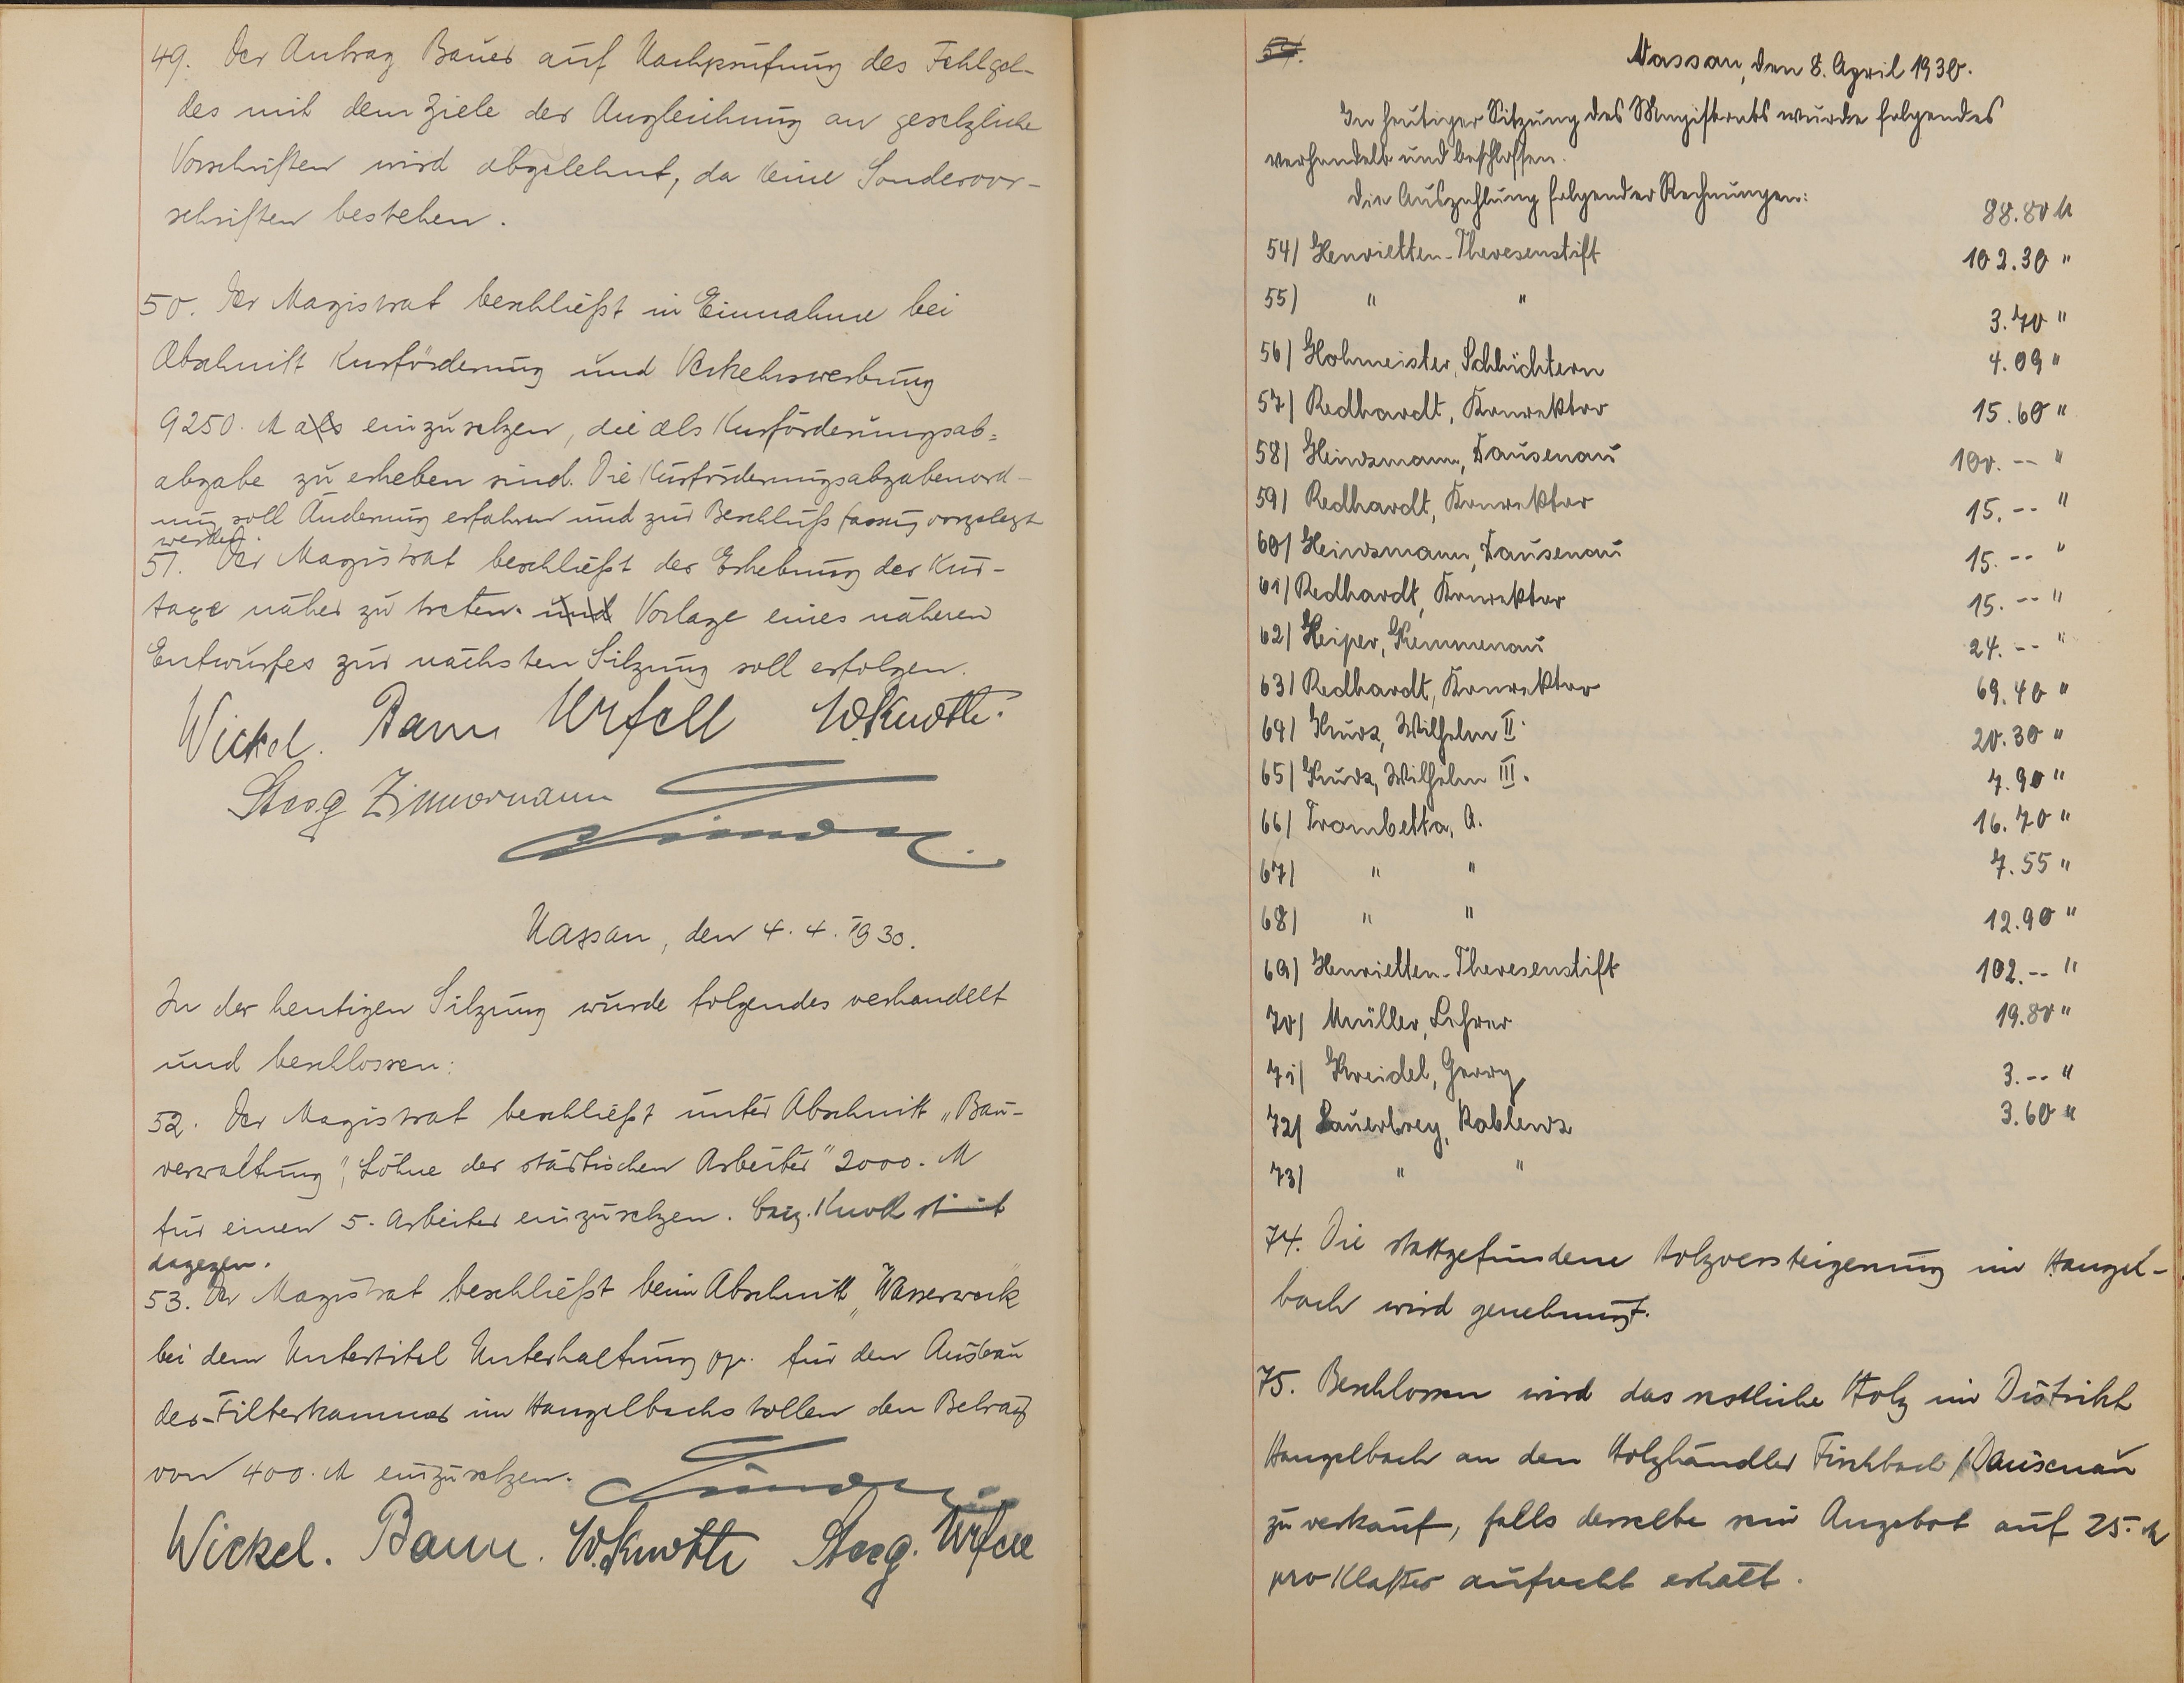 49. Der Antrag Bauer auf Nachprüfung des Fehlgel-
des mit dem Ziele der Angleichung an gesetzliche
Vorschriften wird abgelehnt, da keine Sondervor-
schriften bestehen.
50. Der Magistrat beschließt in Einnahme bei
Abschnitt Kurförderung und Verkehrswerbung
9250. M als einzusetzen, die als Kurförderungsab=
abgabe zu erheben sind. Die Kurförderungsabgabenord-
nung soll Änderung erfahren und zur Beschlußfassung vorgelegt
werden.
51. Der Magistrat beschließt der Erhebung der Kur-
taxe näher zu treten. und Vorlage eines näheren
Entwurfes zur nächsten Sitzung soll erfolgen.
Wickel. Baum Urfell W. Knoth.
Steeg Zimmermann
Nassau, den 4. 4. 1930.
In der heutigen Sitzung wurde folgendes verhandelt
und beschlossen:
52. Der Magistrat beschließt unter Abschnitt „Bau-
verwaltung", „Löhne der städtischen Arbeiter" 2000. M
für einen 5. Arbeiter einzusetzen. Knoth stimmt
dagegen.
53. Der Magistrat beschließt beim Abschnitt „Wasserwerk"
bei dem Untertitel Unterhaltung pp. für den Ausbau
der Filterkammer im Hangelbachstollen den Betrag
von 400. M einzusetzen.
Wickel. Baum. W. Knoth Steeg. Urfell
54.
Nassau, den 8. April 1930.
In heutiger Sitzung des Magistrats wurde folgendes
verhandelt und beschlossen.
Die Auszahlung folgender Rechnungen:
54) Henrietten-Theresenstift 88.80 M
55) " " 102.30 "
56) Hohmeister, Schlüchtern 3.70 "
57) Redhardt, Konrektor 4.09 "
58) Heinzmann, Dausenau 15.60 "
59) Redhardt, Konrektor 100.-- "
60) Heinzmann, Dausenau 15.-- "
61) Redhardt, Konrektor 15.-- "
62) Heiper, Kemmenau 15.-- "
63) Redhardt, Konrektor 24.-- "
64) Kurz, Wilhelm II. 69.40 "
65) Kurz, Wilhelm III. 20.30 "
66) Trombetta, A. 7.90 "
67) " " 16.70 "
68) " " 7.55 "
69) Henrietten-Theresenstift 12.90 "
70) Müller, Lehrer 102.-- "
71) Kreidel, Georg 19.80 "
72) Sauerbrey, Koblenz 3.-- "
73) " " 3.60 "
74. Die stattgefundene Holzversteigerung im Hangel-
bach wird genehmigt.
75. Beschlossen wird das restliche Holz im Distrikt
Hangelbach an den Holzhändler Fischbach/Dausenau
zu verkauf, falls derselbe sein Angebot auf 25. M
pro Klafter aufrecht erhält.